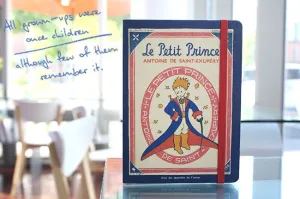 All grown-ups were
once children
although few of them
remember it.
Le Petit Prince
ANTOINE DE SAINT-EXUPÉRY
LE PETIT PRINCE
ANTOINE
DE SAINT